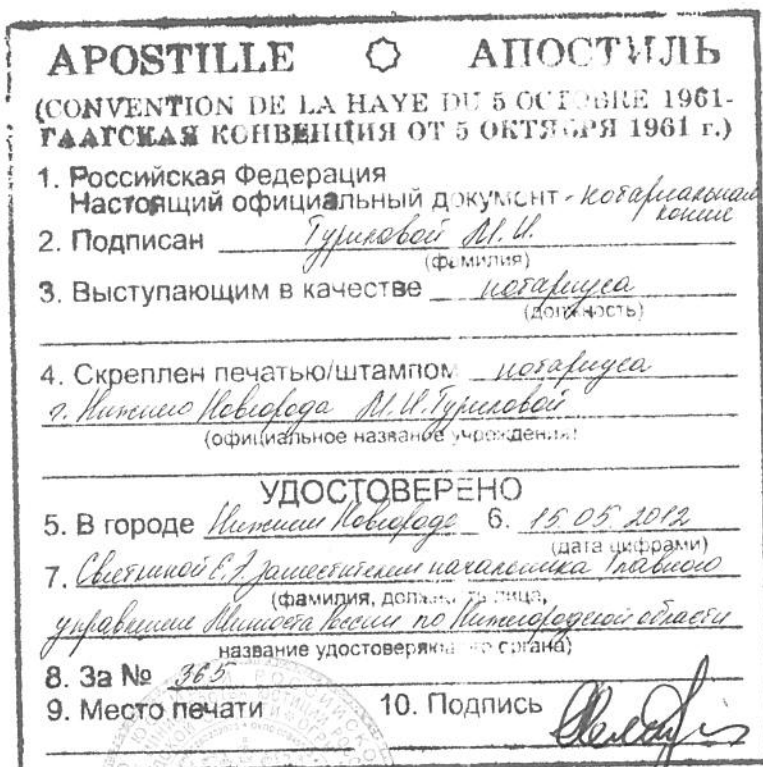 APOSTILLE АПОСТИЛЬ
(CONVENTION DE LA HAYE DU 5 OCTOBRE 1961-
ГААГСКАЯ КОНВЕНЦИЯ ОТ 5 ОКТЯБРЯ 1961 г.)
1. Российская Федерация
Настоящий официальный документ - нотариальная
копие
2. Подписан Туриловой М. И.
(фамилия)
3. Выступающим в качестве нотариуса
(должность)
4. Скреплен печатью/штампом нотариуса
г. Нижнего Новгорода М.И. Туриловой
(официальное название учреждения)
УДОСТОВЕРЕНО
5. В городе Нижнем Новгороде 6. 15.05.2012
(дата цифрами)
7. заместителем начальника Главного
(фамилия, должность лица,
управления Минюста России по Нижегородской области
название удостоверяющего органа)
8. За № 365
9. Место печати 10. Подпись